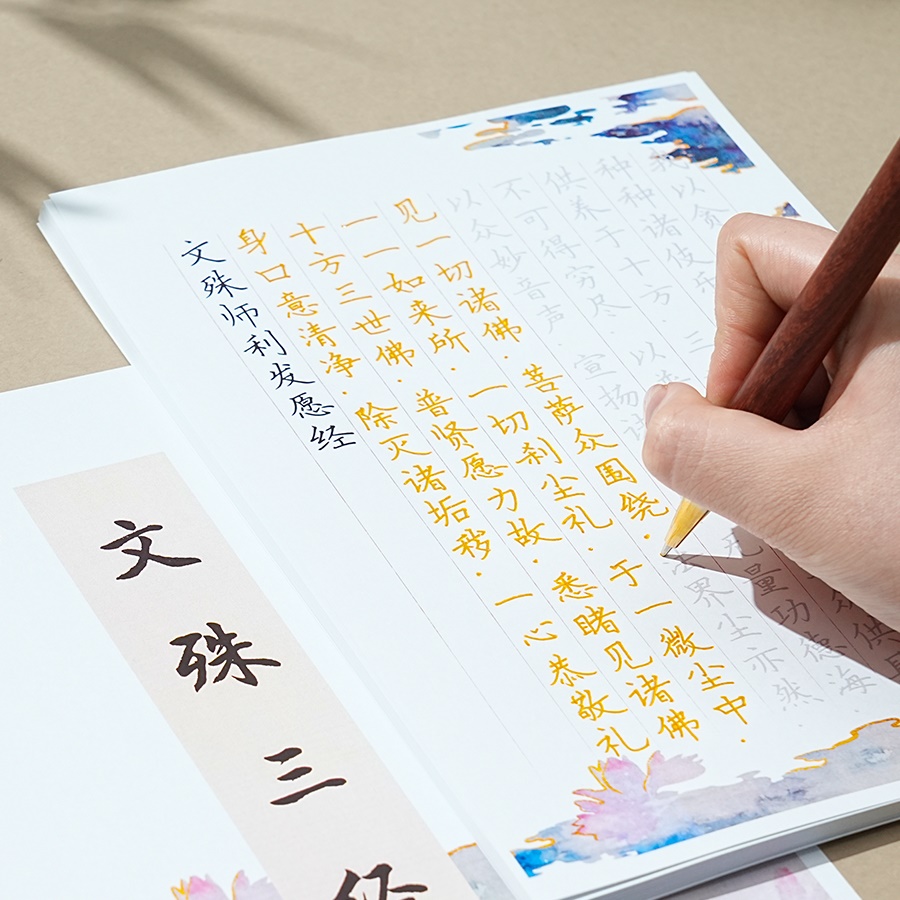 文殊师利发愿经
身口意清净．除灭诸垢秽．一心恭敬礼
十方三世佛．普贤愿力故．悉睹见诸佛
一一如来所．一切刹尘礼．于一微尘中．
见一切诸佛．菩萨众围绕．法界尘亦然．
以众妙音声．宣扬诸 无量功德海
不可得穷尽．以 众供
供养于十方．三
种种诸伎乐
我以贪
文殊三经